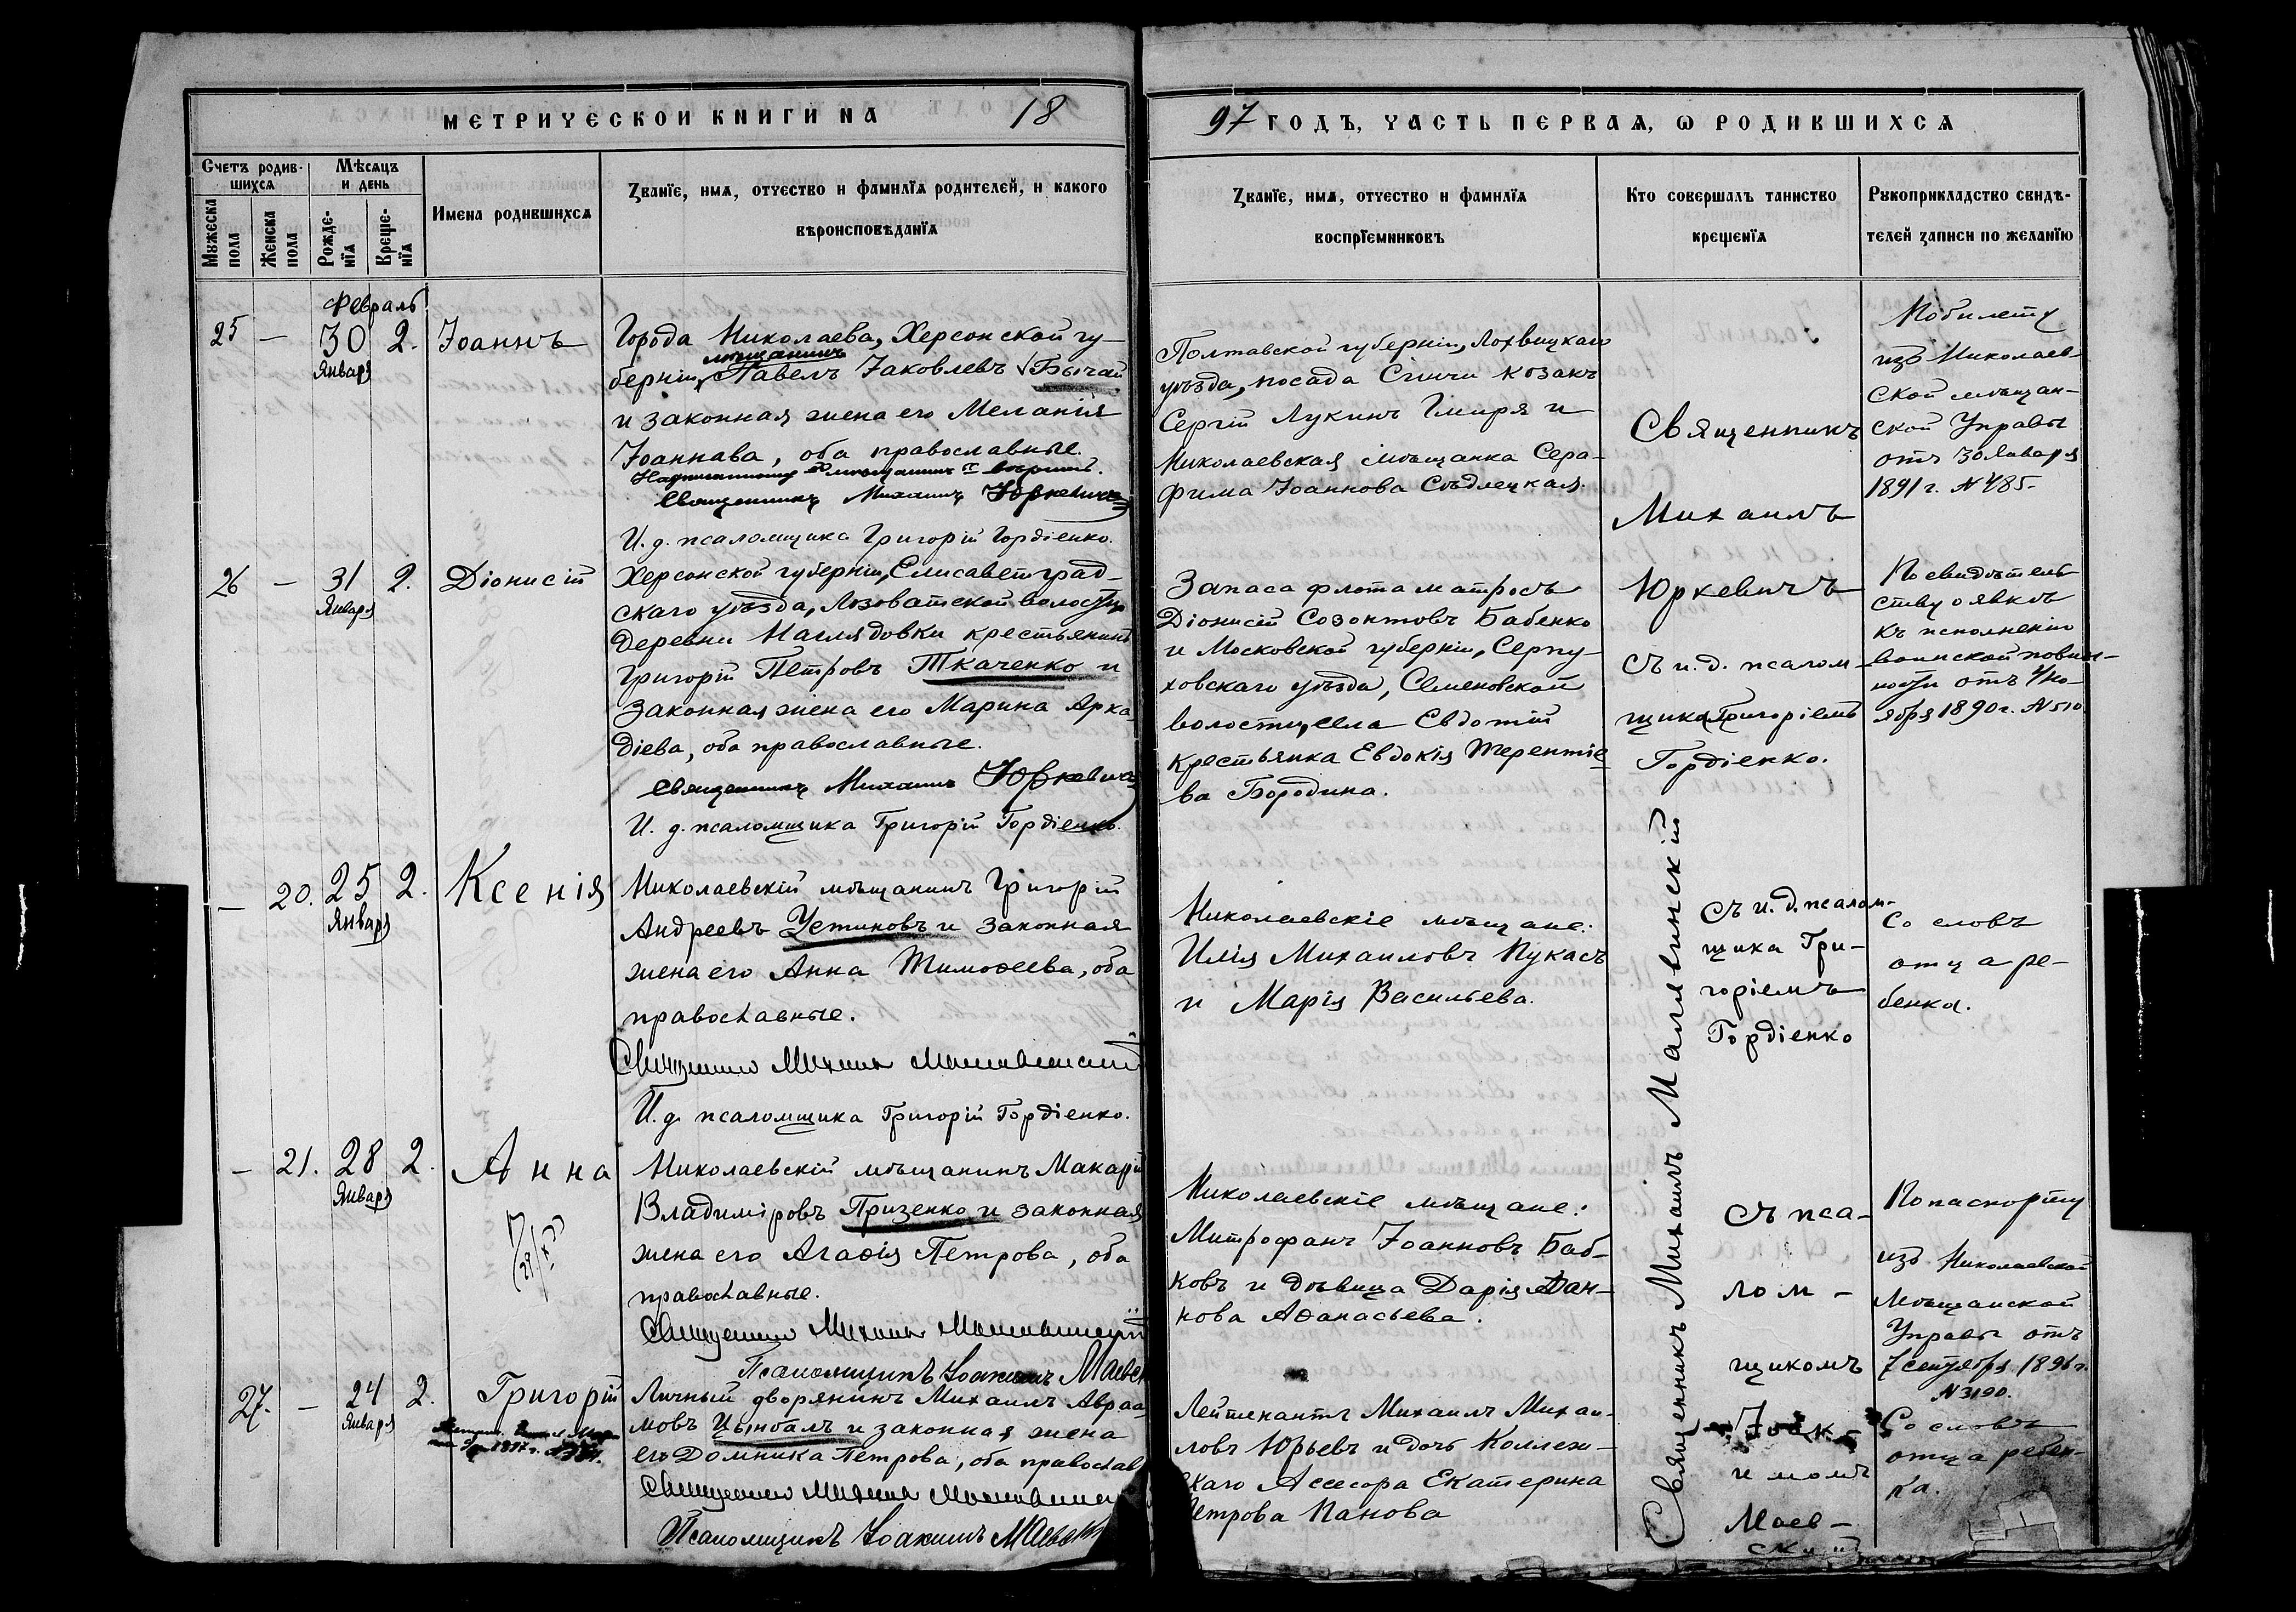 МЕТРИЧЕСКОЙ КНИГИ НА 1897 ГОДЪ, ЧАСТЬ ПЕРВАЯ, Ѡ РОДИВШИХСЯ
Счетъ родившихся
Мѣсяцъ и день
Мужеска пола
Женска пола
Рожденїя
Крещенїя
Имена родившихся
Званїе, имя, отчество и фамилїя родителей, и какого
вѣроисповѣданїя
Званїе, имя, отчество и фамилїя
воспрїемниковъ
Кто совершалъ таинство
крещенїя
Рукоприкладство свидѣ-
телей записи по желанїю
Февраль
25 — 30 2. Іоаннъ
Января
Города Николаева, Херсонской гу-
берніи, мѣщанинъ Павелъ Іаковлевъ Бычай
и законная жена его Меланія
Іоаннова, оба православные.
Священникъ Михаилъ Юркевичъ
И. д. псаломщика Григорій Гордіенко.
Полтавской губерніи, Лохвицкаго
уѣзда, посада Сѣнчи козакъ
Сергій Лукинъ Гмиря и
Николаевская мѣщанка Сера-
фима Іоаннова Сѣдлецкая.
Священникъ
Михаилъ
Юркевичъ
съ и. д. псалом-
щика Григоріемъ
Гордіенко.
По билету
изъ Николаев-
ской мѣщан-
ской Управы
отъ 30 Января
1891 г. № 485.
26 — 31 2. Діонисій
Января
Херсонской губерніи, Елисаветград-
скаго уѣзда, Лозоватской волости,
деревни Наглядовки крестьянинъ
Григорій Петровъ Ткаченко и
законная жена его Марина Арка
діева, оба православные.
Священникъ Михаилъ Юркевичъ
И. д. псаломщика Григорій Гордіенко.
Запаса флота матросъ
Діонисій Созонтовъ Бабенко
и Московской губерніи, Серпу-
ховскаго уѣзда, Семеновской
волости, села Евдотій
крестьянка Евдокія Терентіе-
ва Бородина.
По свидѣтель
ству о явкѣ
къ исполненію
воинской повин-
ности отъ
ября 1890 г. № 510
— 20. 25 2. Ксенія
Января
Николаевскій мѣщанинъ Григорій
Андреевъ Устиновъ и законная
жена его Анна Тимоѳеева, оба
православные.
Священникъ Михаилъ Малявинскій
И. д. псаломщика Григорій Гордіенко.
Николаевскіе мѣщане:
Илія Михаиловъ Пукасъ
и Марія Васильева.
Священникъ Михаилъ Малявинскій
съ и. д. псалом-
щика Гри-
горіемъ
Гордіенко
Со словъ
отца ре-
бенка.
— 21. 28 2. Анна
Января
Николаевскій мѣщанинъ Макарій
Владиміровъ Призенко и законная
жена его Агаѳія Петрова, оба
православные.
Священникъ Михаилъ Малявинскій
Псаломщикъ Іоакимъ Маевск
Николаевскіе мѣщане:
Митрофанъ Іоанновъ Баб-
ковъ и дѣвица Дарія
нова Аѳанасьева.
съ пса-
лом-
щикомъ
Іоак-
имомъ
Маев-
скій
По паспорту
изъ Николаевской
Мѣщанской
Управы отъ
7 сентября 1896 г.
№ 3190.
27. — 24 2. Григорій
Января
Личный дворянинъ Михаилъ Авраа-
мовъ Цымбалъ и законная жена
его Домника Петрова, оба православ
Священникъ Михаилъ Малявинскій
Псаломщикъ Іоакимъ Маевск
Лейтенантъ Михаилъ Михаи-
ловъ Юрьевъ и дочь Коллеж-
скаго Ассесора Екатерина
Петрова Панова
Со словъ
отца ребен-
ка.